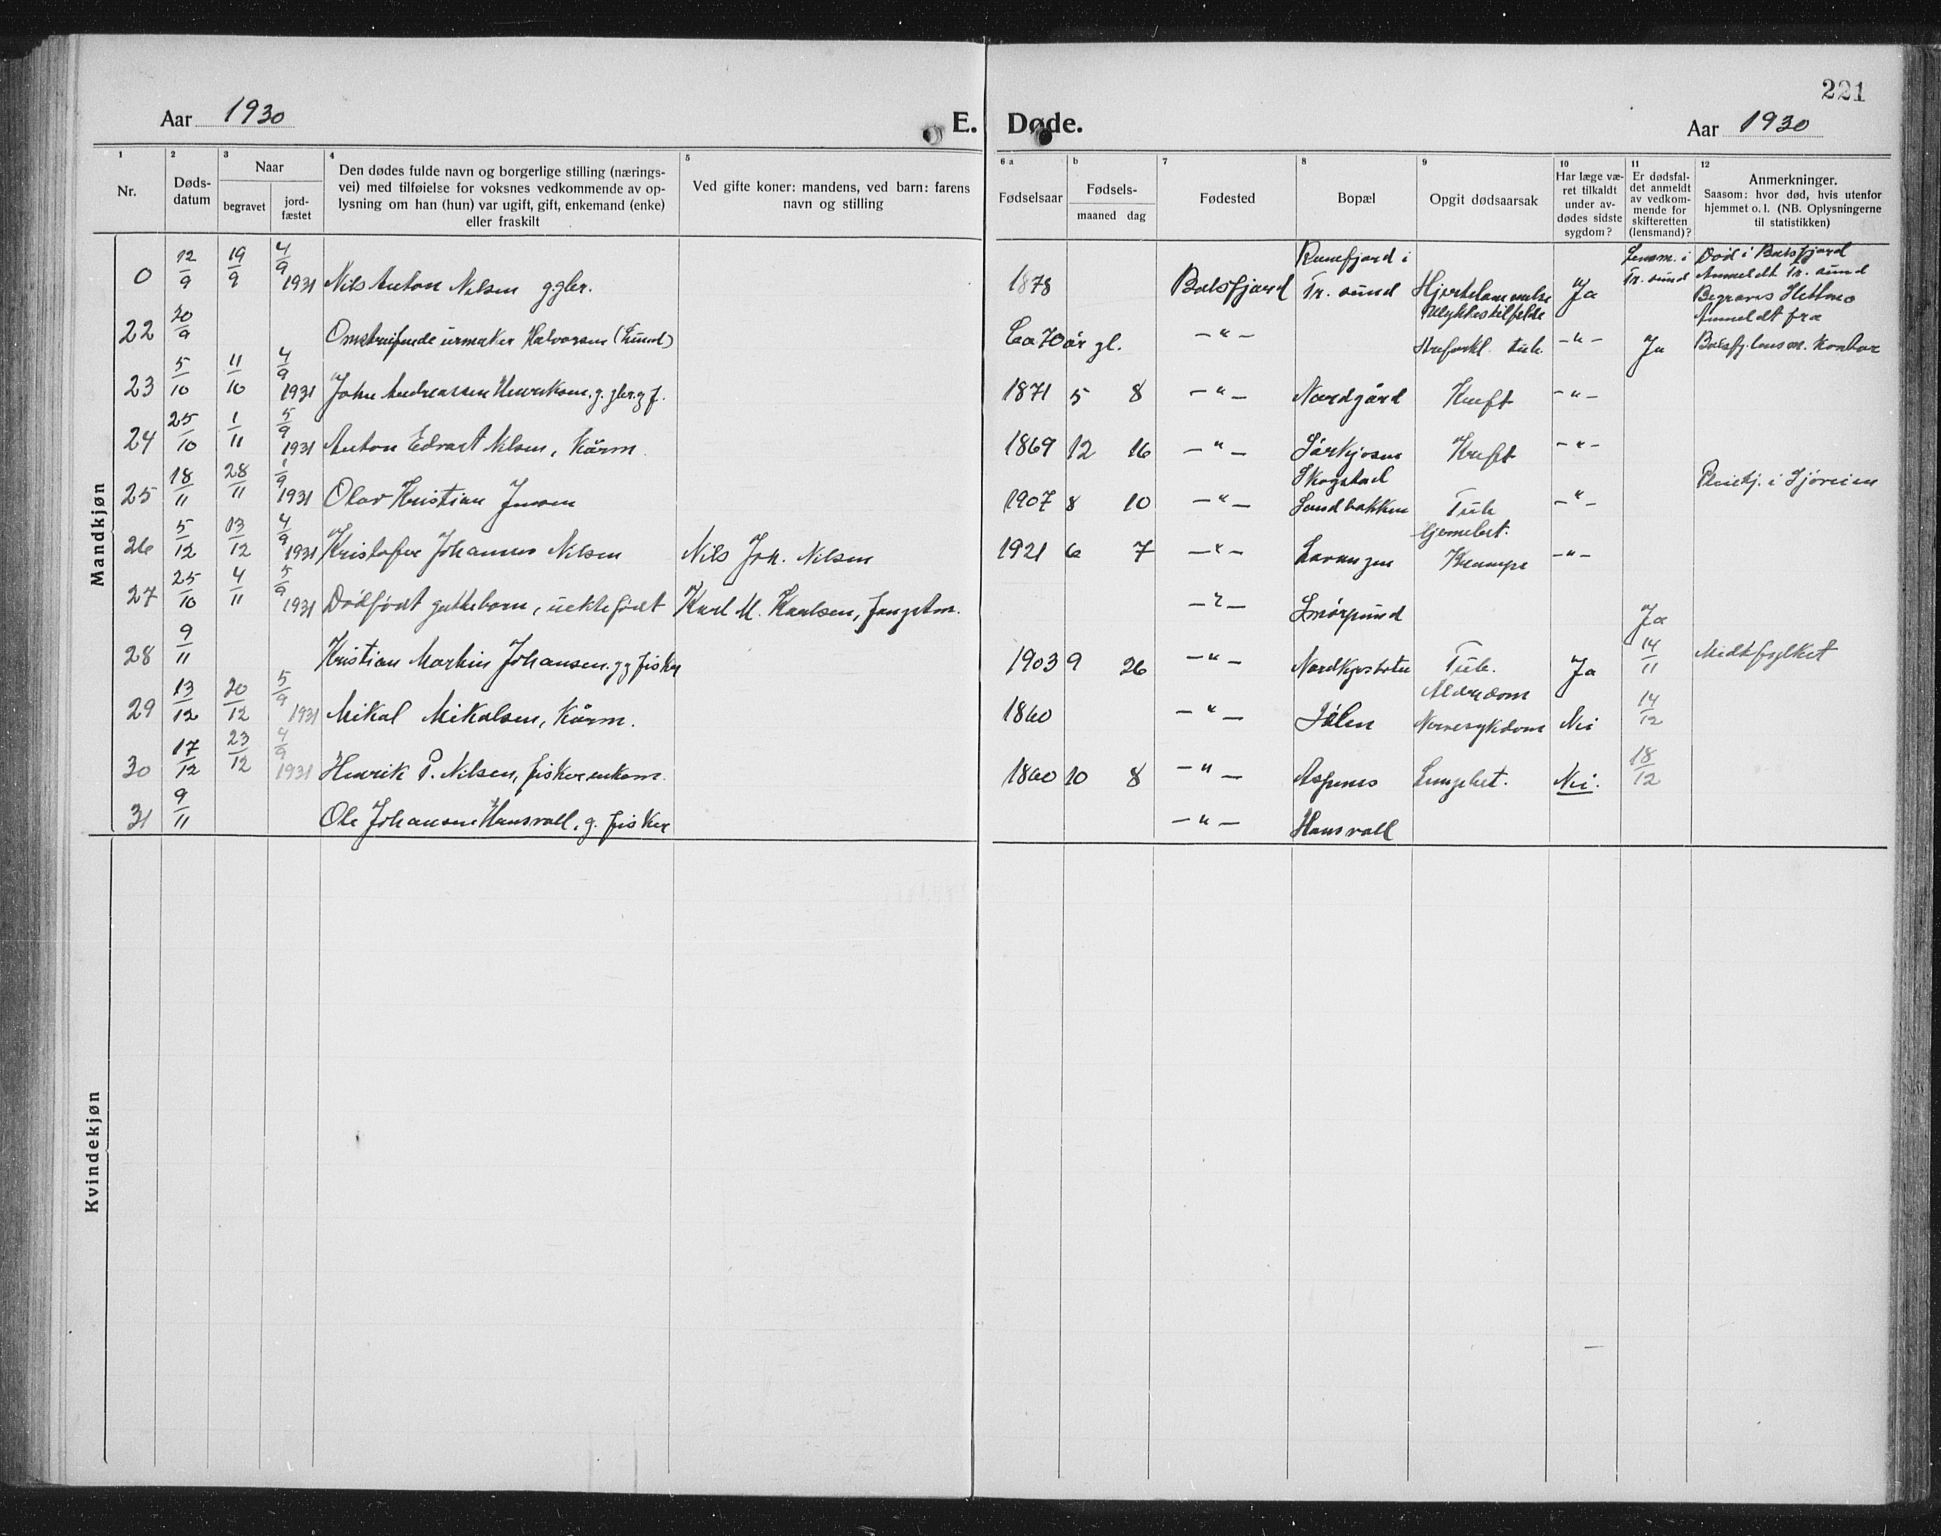 221
Aar 1930
E. Døde.
Aar 1930
1 2 3 4 5 6 a b 7 8 9 10 11 12
Nr.
Døds-
datum
Naar
begravet
jord-
fæstet
Den dødes fulde navn og borgerlige stilling (nærings-
vei) med tilføielse for voksnes vedkommende av op-
lysning om han (hun) var ugift, gift, enkemand (enke)
eller fraskilt
Ved gifte koner: mandens, ved barn: farens
navn og stilling
Fødselsaar
Fødsels-
maaned dag
Fødested
Bopæl
Opgit dødsaarsak
Har læge væ-
ret tilkaldt
under av-
dødes sidste
sygdom?
Er dødsfal-
det anmeldt
av vedkom-
mende for
skifteretten
(lensmand)?
Anmerkninger.
Saasom: hvor død, hvis utenfor
hjemmet o. l. (NB. Oplysningerne
til statistikken)
Mandkjøn
0 12/9 19/9 4/9 1931 Nils Anton Nilsen g.gbr. 1878 Balsfjord i Tr. sund Ja Lensm. i Tr. sund Død i Balsfjord
Anmeldt Tr. sund
22 20/9 Omstreifende urmaker Halvorsen (Lund) Ca 70 år gl. —"— Ulykkestilfelde —"— Ja Anmeldt fra
Balsfj. lensm. kontor
23 5/10 11/10 4/9 1931 John Andreassen Henriksen, g. gbr. 1871 5 8 —"— Nordgård Kreft —"—
24 25/10 1/11 5/9 1931 Anton Edvart Nilsen, kårm. 1869 12 16 —"— Sørkjosen Kreft —"—
25 18/11 28/11 1/9 1931 Olav Kristian Jensen 1907 8 10 —"— Skogstad Sandbakken Tub. —"— i Sjøveien
26 5/12 13/12 4/9 1931 Kristofer Johannes Nilsen Nils Joh. Nilsen 1921 6 7 —"— Lavangen Krampe —"—
27 25/10 4/11 5/9 1931 Dødfødt guttebarn, uektefødt Karl M. Karlsen, fangstm. —"— Ja
28 9/11 Kristian Martin Johansen. fisker 1903 9 26 —"— Nordkjosbotn Tub. Ja 14/11 Midtfylket
29 13/12 20/12 5/9 1931 Mikal Mikalsen, kårm. 1860 —"— Alderdom Nervesykdom Nei 14/12
30 17/12 23/12 4/9 1931 Henrik P. Nilsen, fisker enkem. 1860 10 8 —"— Aspenes Lungebet. Nei. 18/12
31 9/11 Ole Johansen Hansvoll, g. fisker —"— Hansvoll
Kvindekjøn